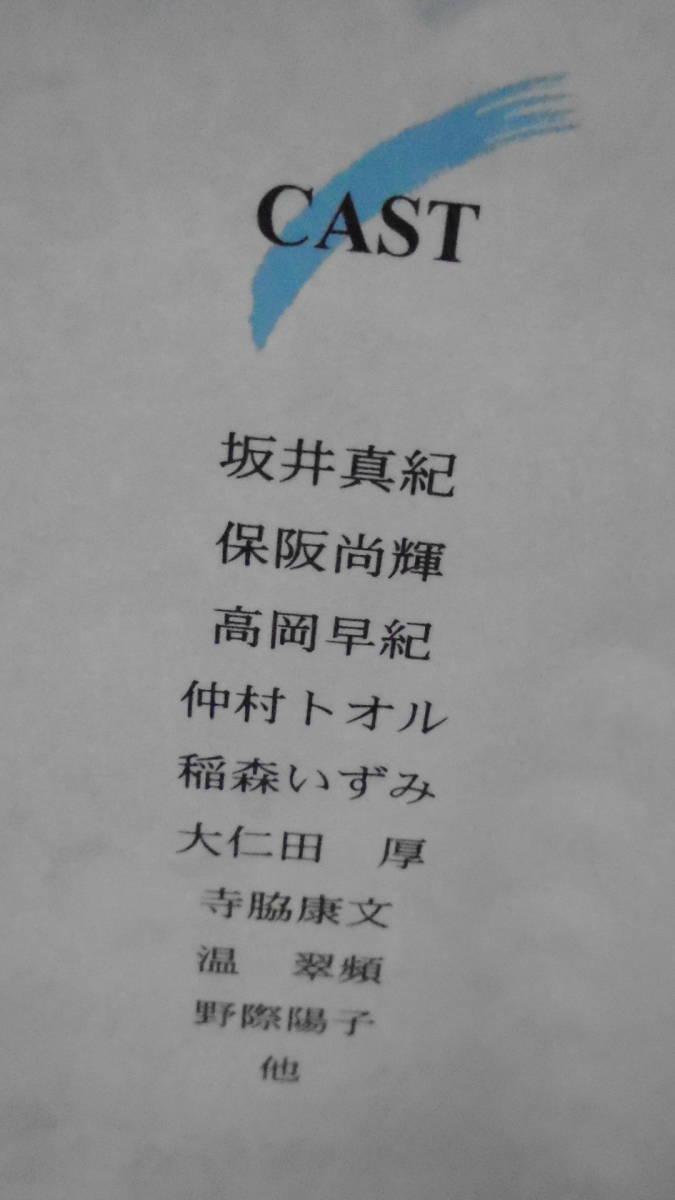 CAST
坂井真紀
保阪尚輝
高岡早紀
仲村トオル
稲森いずみ
大仁田　厚
寺脇康文
温　翠頻
野際陽子
他